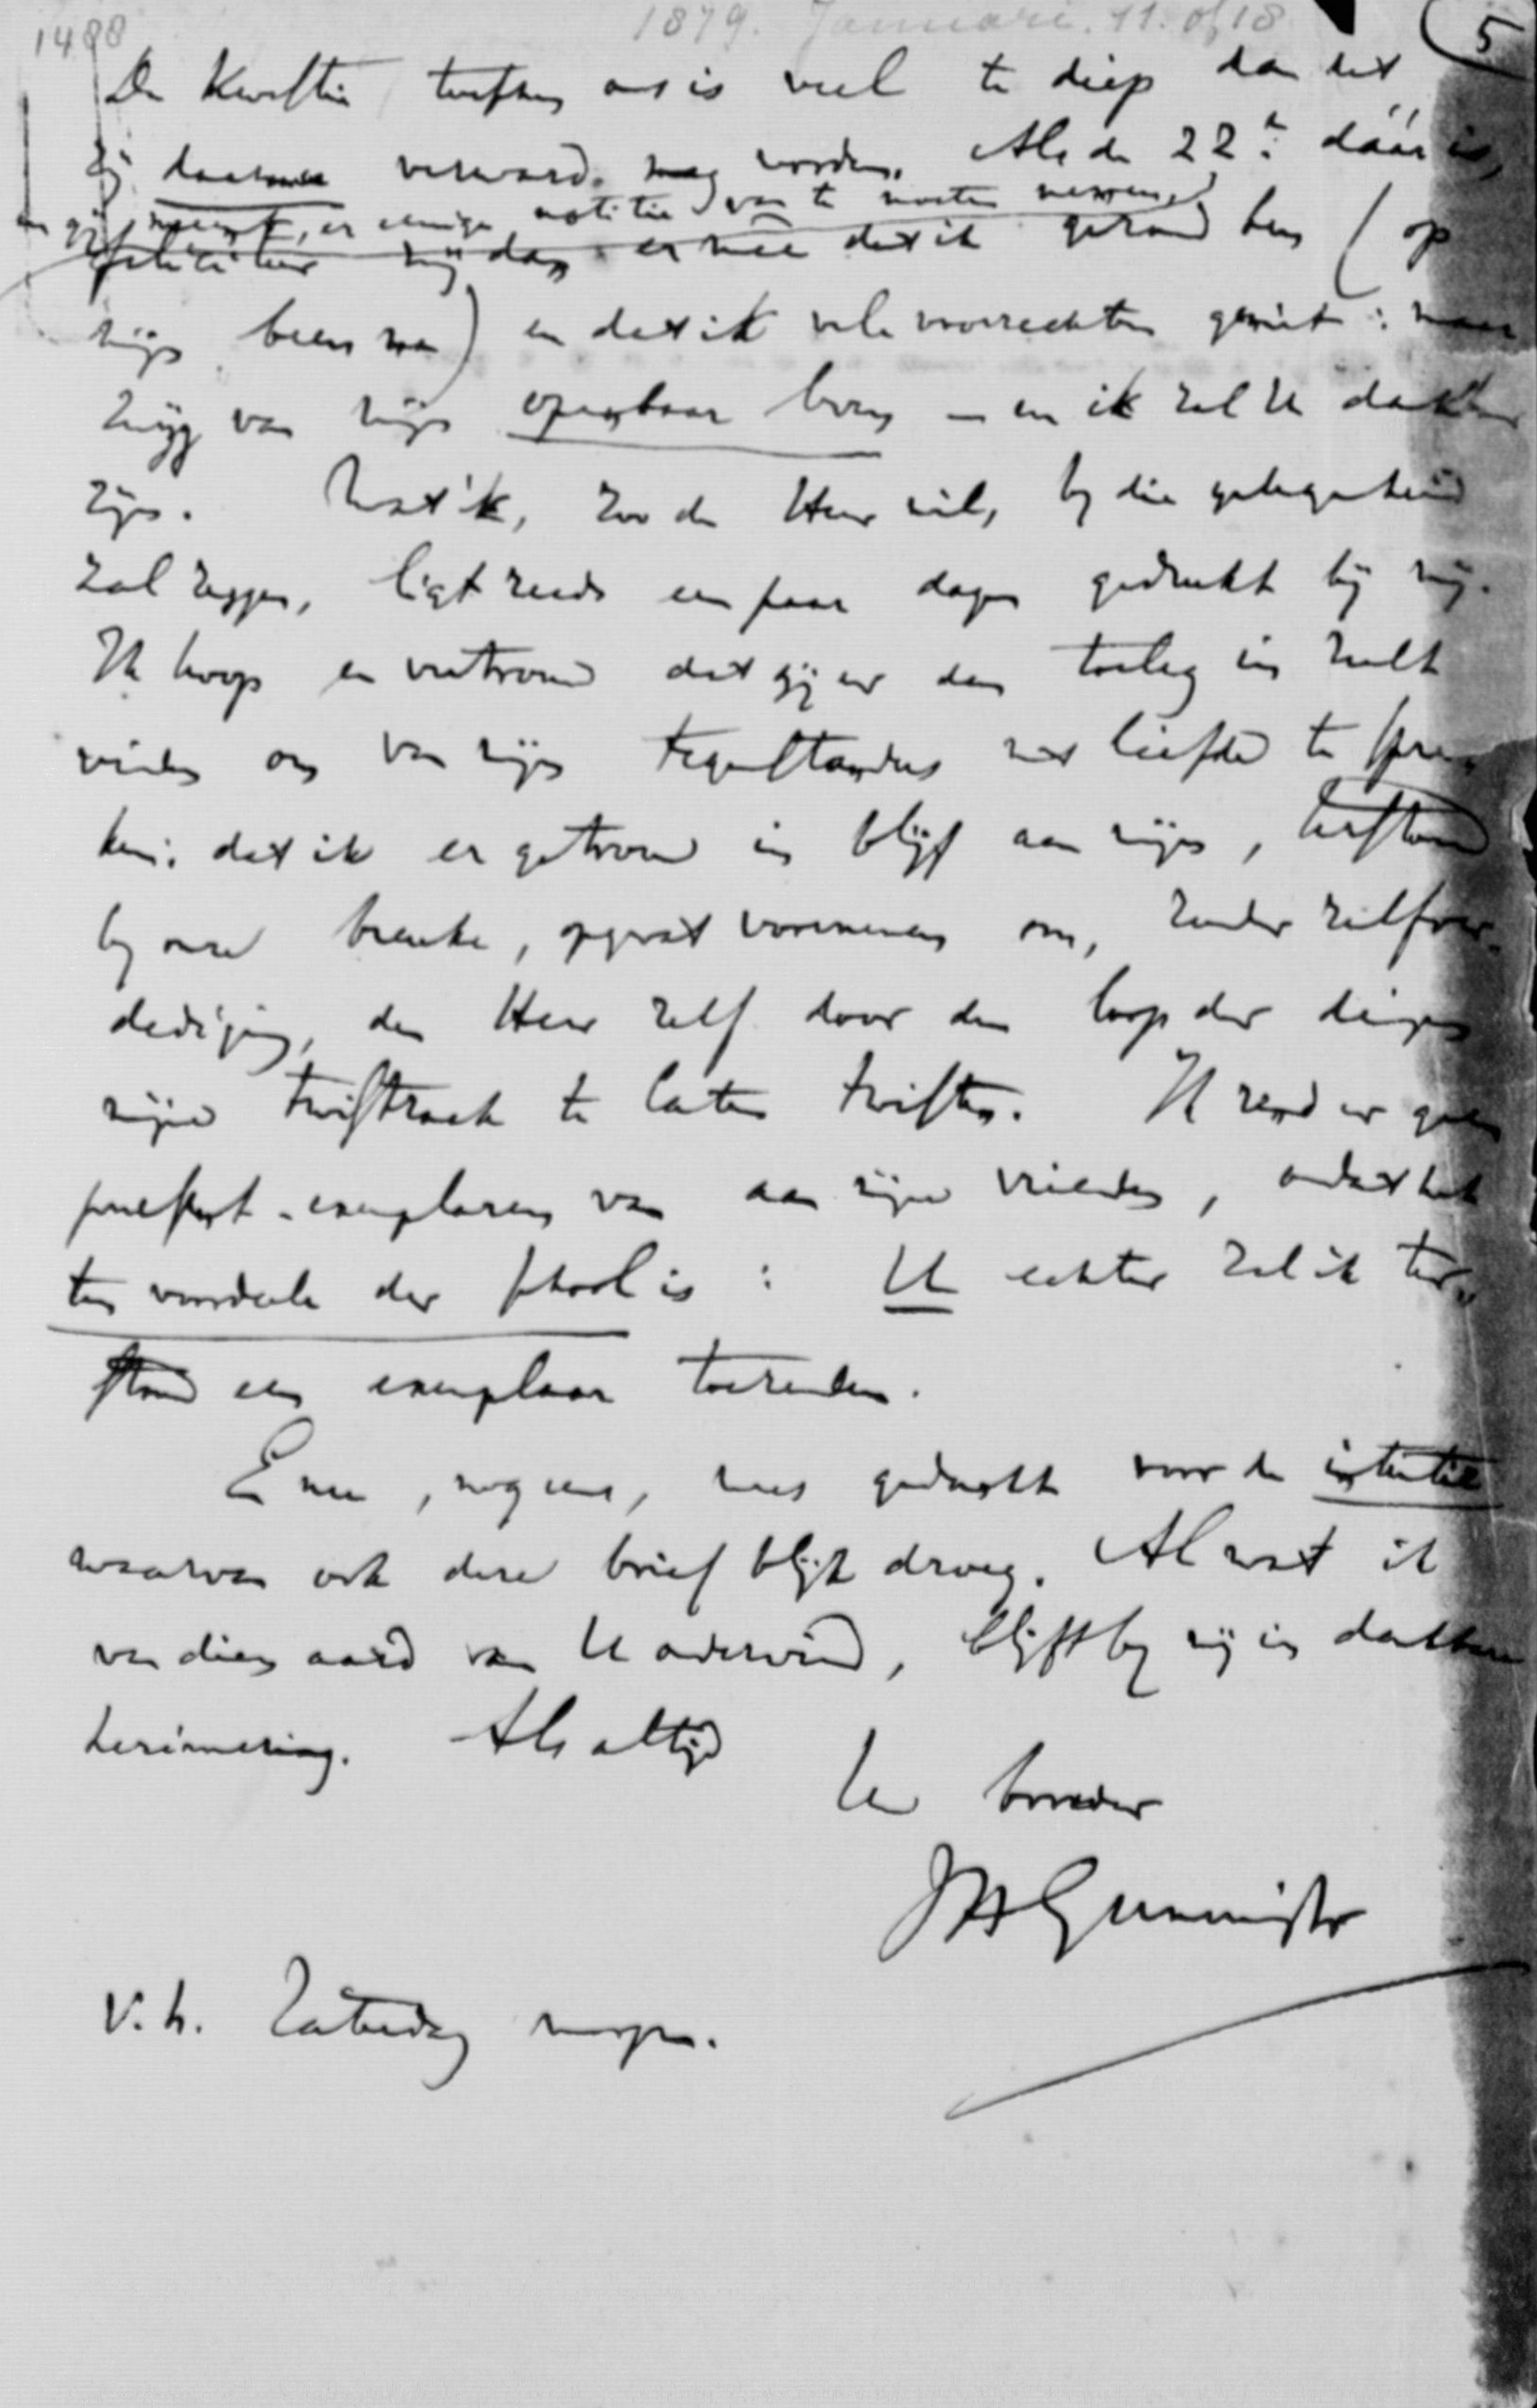 1488
1879. Januari. 11. of 18
5
De kwestie tusschen ons is veel te diep dan dat
zij daarmee verward mag worden. Als de 22e dáár is,
en gij meent, er eenige notitie van te moeten nemen,
feliciteer mij dan ermee dat ik gezond ben (op
mijn been na) en dat ik vele voorrechten geniet: maar
zwijg van mijn openbaar leven – en ik zal U dankbaar
zijn. Wat ik, zoo de Heer wil, bij die gelegenheid
zal zeggen, ligt reeds een paar dagen gedrukt bij mij.
Ik hoop en vertrouw dat gij er den toeleg in zult
vinden om van mijn tegenstanders met liefde te spre-
ken: dat ik er getrouw in blijf aan mijn, terstond
bij onze breuke, opgevat voornemen om, zonder zelfver-
dediging, den Heer zelf door den loop der dingen
mijne twistzaak te laten twisten. Ik zend er geen
present-exemplaren van aan mijne vrienden, omdat het
ten voordeele der school is: U echter zal ik ter-
stond een exemplaar toezenden.
En nu, nog eens, wees gedankt voor de intentie
waarvan ook deze brief blijk droeg. Al wat ik
van dien aard van U ondervind, blijft bij mij in dankbare
herinnering. Als altijd
Uw broeder
JHGunning Jr
V. h. Zaturdag morgen.